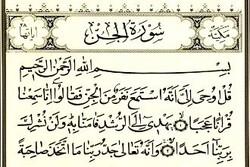 مكية سورة الجن آياتها ٢٨
بسم الله الرحمن الرحيم
قل أوحي إلي أنه استمع نفر من الجن فقالوا إنا سمعنا
قرآنا عجبا ١ يهدي إلى الرشد فآمنا به ولن نشرك
بربنا أحدا ٢ وأنه تعالى جد ربنا ما اتخذ صاحبة